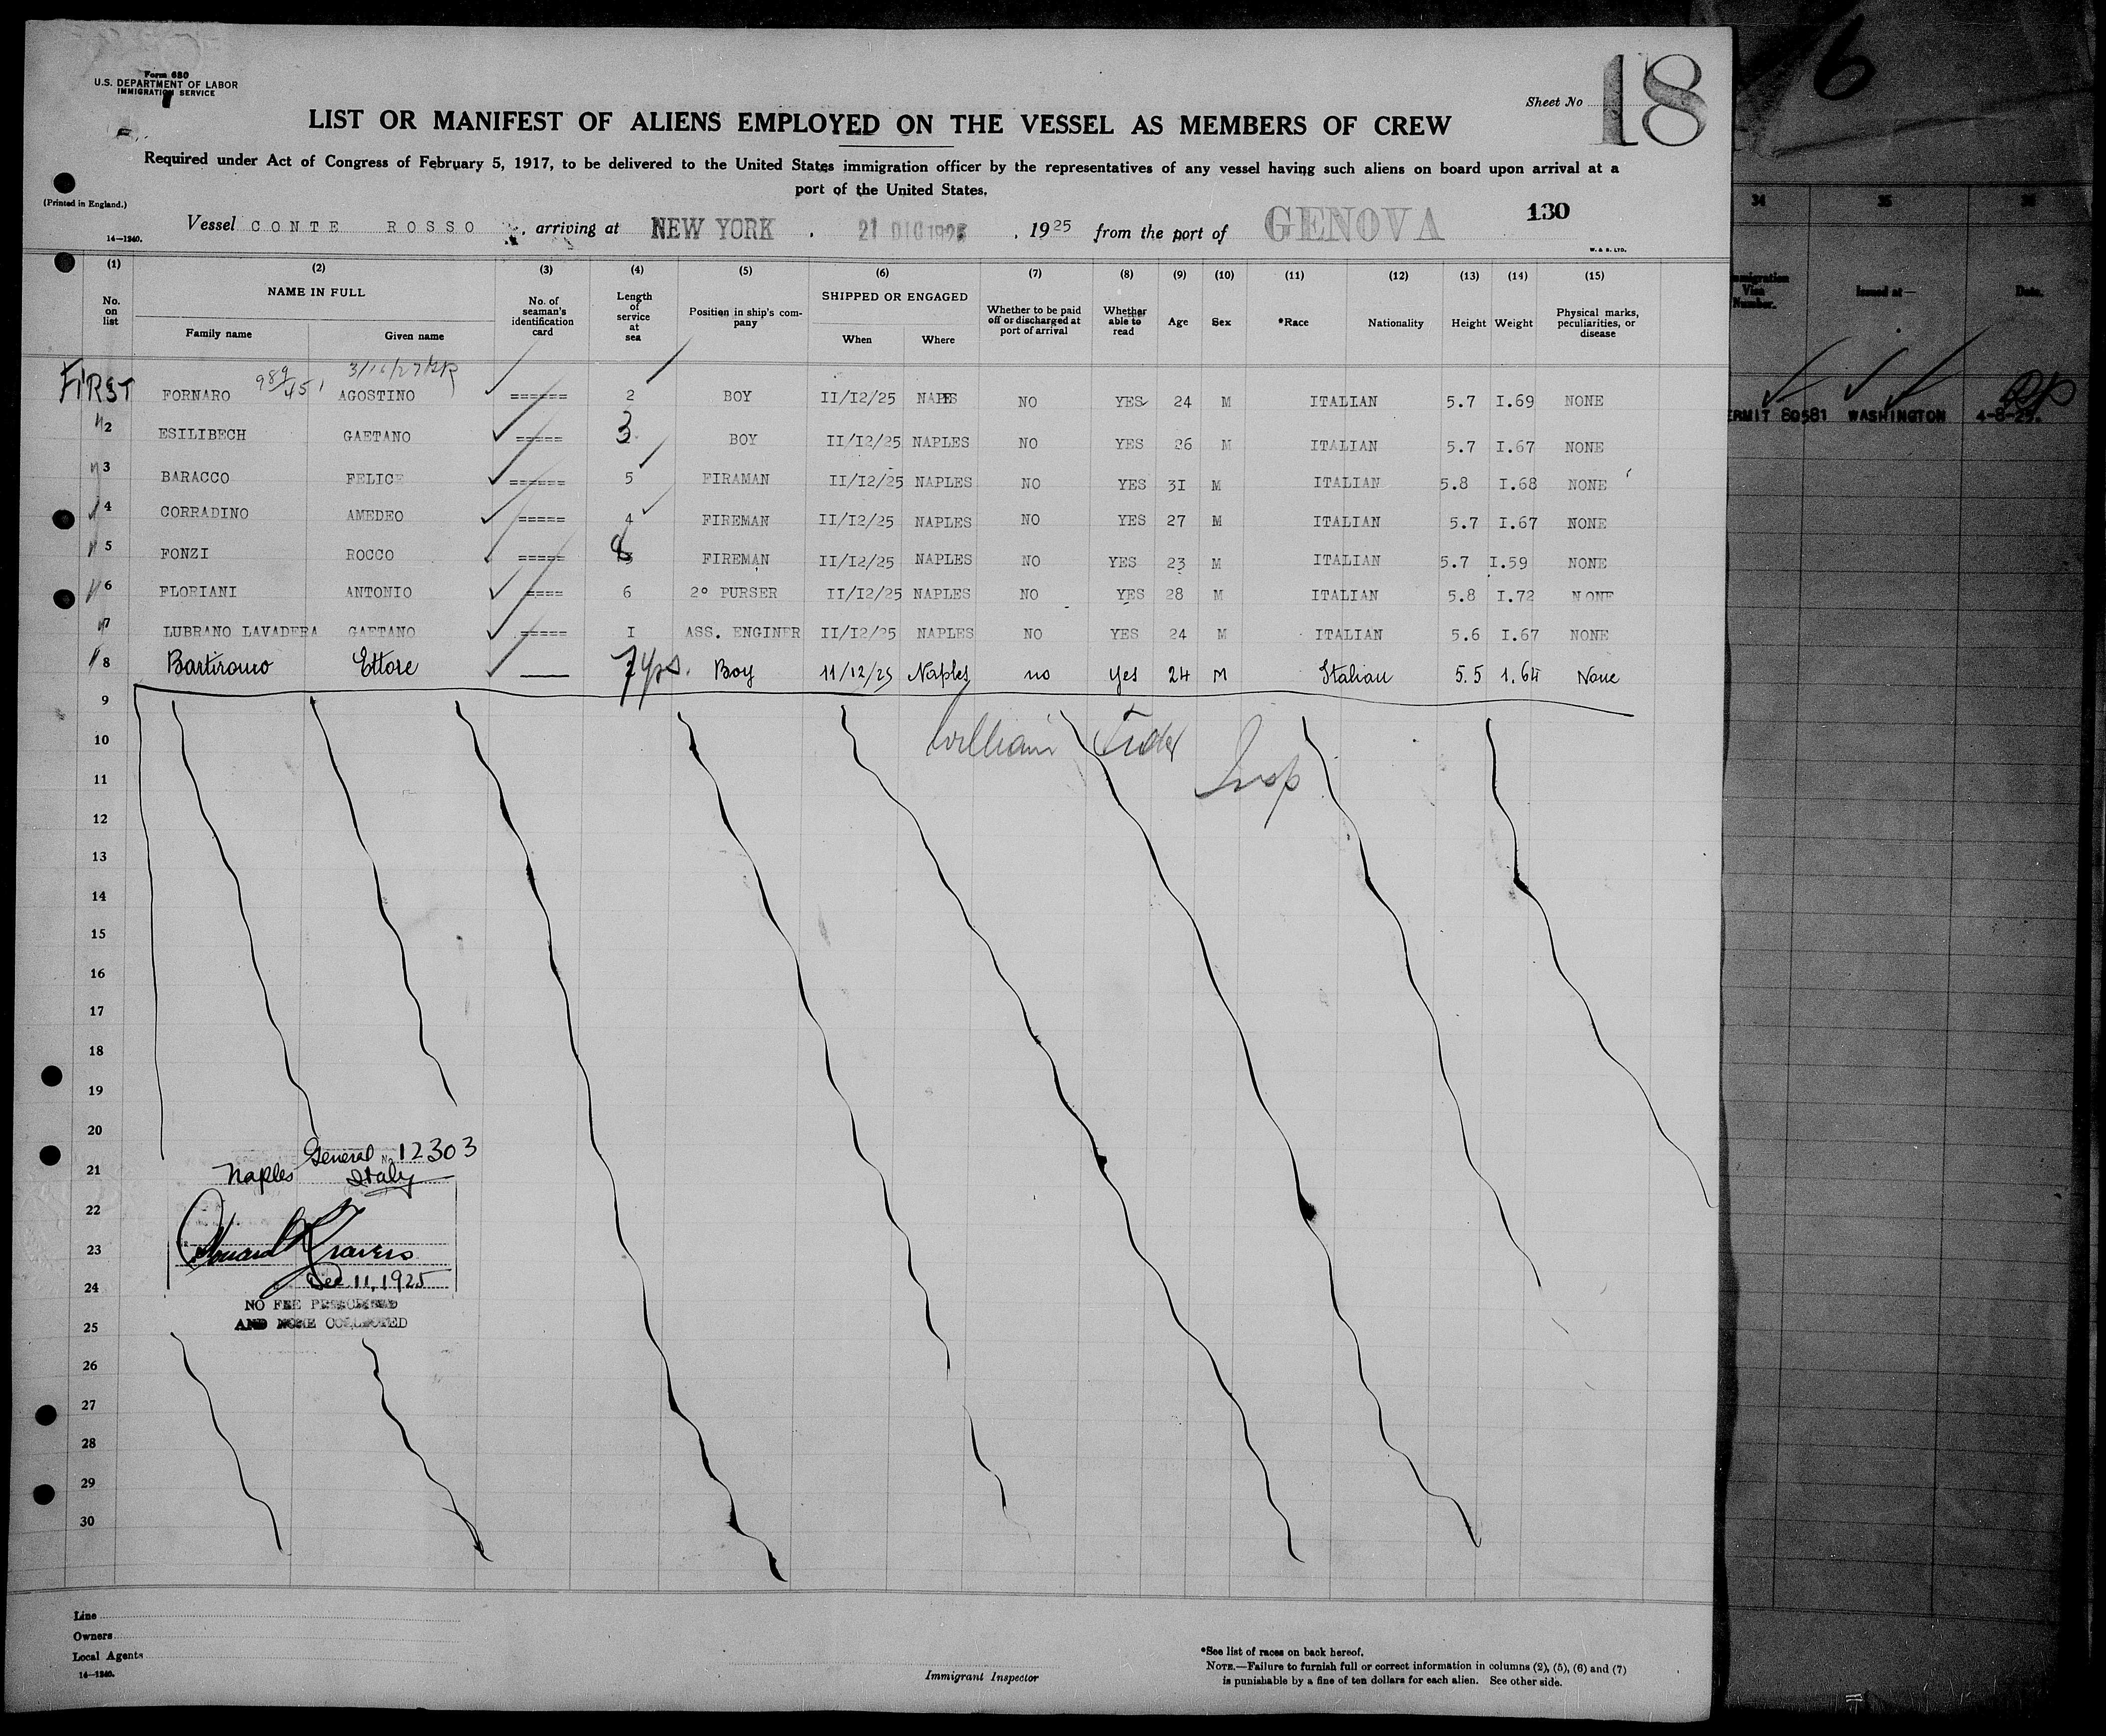 Form 680
U.S. DEPARTMENT OF LABOR
IMMIGRATION SERVICE
Sheet No 18
LIST OR MANIFEST OF ALIENS EMPLOYED ON THE VESSEL AS MEMBERS OF CREW
Required under Act of Congress of February 5, 1917, to be delivered to the United States immigration officer by the representatives of any vessel having such aliens on board upon arrival at a
port of the United States.
(Printed in England.)
130
Vessel CONTE ROSSO, arriving at NEW YORK, 21 DIC 1925, 1925 from the port of GENOVA
14—1240.
W. & S. LTD.
(1) (2) (3) (4) (5) (6) (7) (8) (9) (10) (11) (12) (13) (14) (15)
No. on list NAME IN FULL Family name Given name No. of seaman's identification card Length of service at sea Position in ship's company SHIPPED OR ENGAGED When Where Whether to be paid off or discharged at port of arrival Whether able to read Age Sex *Race Nationality Height Weight Physical marks, peculiarities, or disease
FIRST FORNARO AGOSTINO ====== 2 BOY II/I2/25 NAPES NO YES 24 M ITALIAN 5.7 I.69 NONE
2 ESILIBECH GAETANO ===== 3 BOY II/I2/25 NAPLES NO YES 26 M ITALIAN 5.7 I.67 NONE
3 BARACCO FELICE ====== 5 FIRAMAN II/I2/25 NAPLES NO YES 3I M ITALIAN 5.8 I.68 NONE
4 CORRADINO AMEDEO ===== 4 FIREMAN II/I2/25 NAPLES NO YES 27 M ITALIAN 5.7 I.67 NONE
5 FONZI ROCCO ===== 8 FIREMAN II/I2/25 NAPLES NO YES 23 M ITALIAN 5.7 I.59 NONE
6 FLORIANI ANTONIO ==== 6 2° PURSER II/I2/25 NAPLES NO YES 28 M ITALIAN 5.8 I.72 NONE
7 LUBRANO LAVADERA GAETANO ===== I ASS. ENGINER II/I2/25 NAPLES NO YES 24 M ITALIAN 5.6 I.67 NONE
8 Bartiromo Ettore — 7 yrs. Boy 11/12/25 Naples no yes 24 M Italian 5.5 1.64 None
9
10 William
11 Insp
12
13
14
15
16
17
18
19
20
General No 12303
21 Naples Italy
22
23
24 Dec 11, 1925
NO FEE PRESCRIBED
25 AND NONE COLLECTED
26
27
28
29
30
Line
Owners
Local Agents
14—1240.
Immigrant Inspector
*See list of races on back hereof.
NOTE.—Failure to furnish full or correct information in columns (2), (5), (6) and (7)
is punishable by a fine of ten dollars for each alien. See other side.
6
34 35 36
Immigration Visa Number. Issued at— Date.
ERMIT 80581 WASHINGTON 4-8-25.